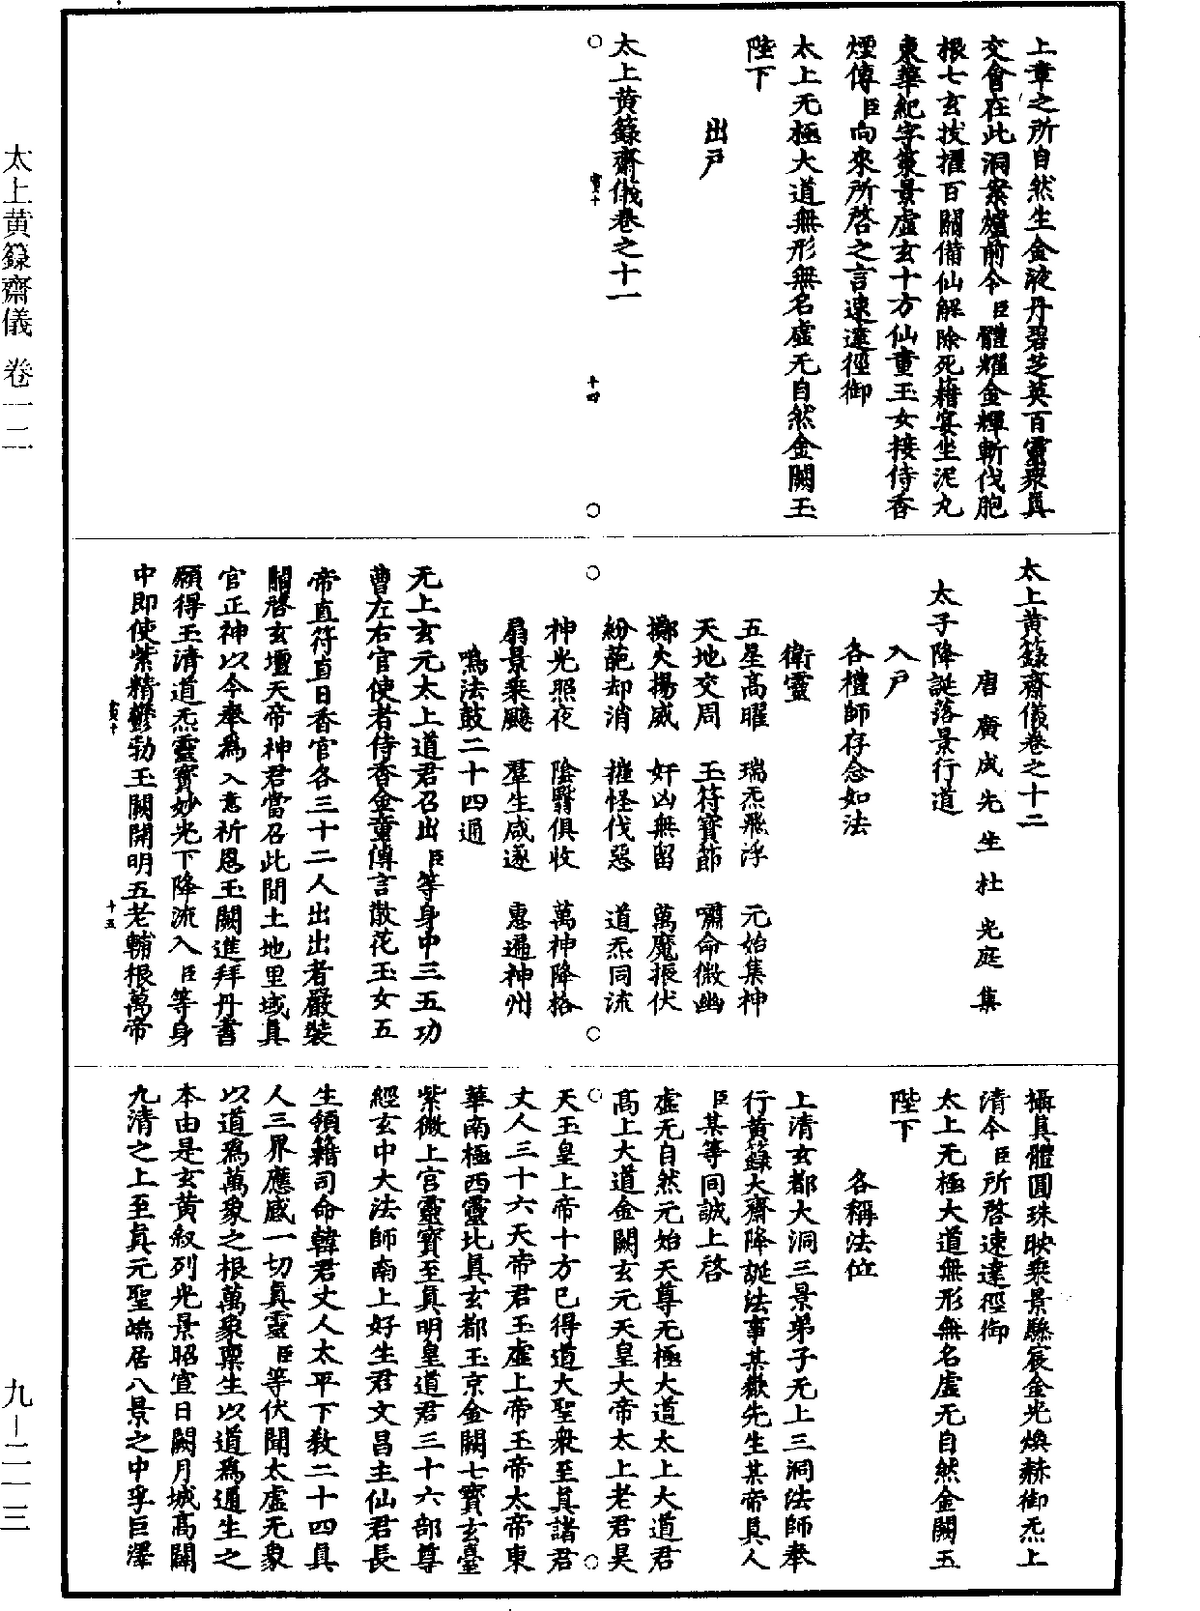 上章之所自然生金液丹碧芝英百靈衆真
交會在此洞案爐前今臣體耀金輝斬伐胞
根七玄拔擢百關備仙解除死籍宴坐泥丸
東華紀字策景虛玄十方仙童玉女接侍香
煙傳臣向來所啓之言速達徑御
太上无極大道無形無名虛无自然金闕玉
陛下
出戶
太上黄籙齋儀卷之十一
寅十
十四
太上黄籙齋儀卷之十二
唐廣成先生杜光庭集
太子降誕落景行道
入戶
各禮師存念如法
衛靈
五星高曜 瑞炁飛浮 元始集神
天地交周 玉符寶節 嘯命微幽
擲火揚威 奸凶無留 萬魔振伏
紛葩却消 摧怪伐惡 道炁同流
神光照夜 陰翳俱收 萬神降格
扇景乘飈 羣生咸遂 惠遍神州
鳴法鼓二十四通
无上玄元太上道君召出臣等身中三五功
曹左右官使者侍香金童傳言散花玉女五
帝直符直日香官各三十二人出出者嚴裝
關啓玄壇天帝神君當召此間土地里域真
官正神以今奉為入意祈恩玉闕進拜丹書
願得玉清道炁靈寶妙光下降流入臣等身
中即使紫精鬱勃玉闕開明五老輔根萬帝
寅十
十五
攝真體圓珠映乘景驂宸金光煥赫御炁上
清今臣所啓速達徑御
太上无極大道無形無名虛无自然金闕玉
陛下
各稱法位
上清玄都大洞三景弟子无上三洞法師奉
行黄籙大齋降誕法事某歡先生某帝真人
臣某等同誠上啓
虛无自然元始天尊无極大道太上大道君
高上大道金闕玄元天皇大帝太上老君昊
天玉皇上帝十方已得道大聖衆至真諸君
丈人三十六天帝君玉虛上帝玉帝太帝東
華南極西靈北真玄都玉京金闕七寶玄臺
紫微上宮靈寶至真明皇道君三十六部尊
經玄中大法師南上好生君文昌主仙君長
生領籍司命韓君丈人太平下教二十四真
人三界應感一切真靈臣等伏聞太虛无象
以道爲萬象之根萬象稟生以道爲通生之
本由是玄黄叙列光景昭宣日闕月城高闢
九清之上至真元聖端居八景之中孚巨澤
太上黄籙齋儀 卷一二
九－二一三